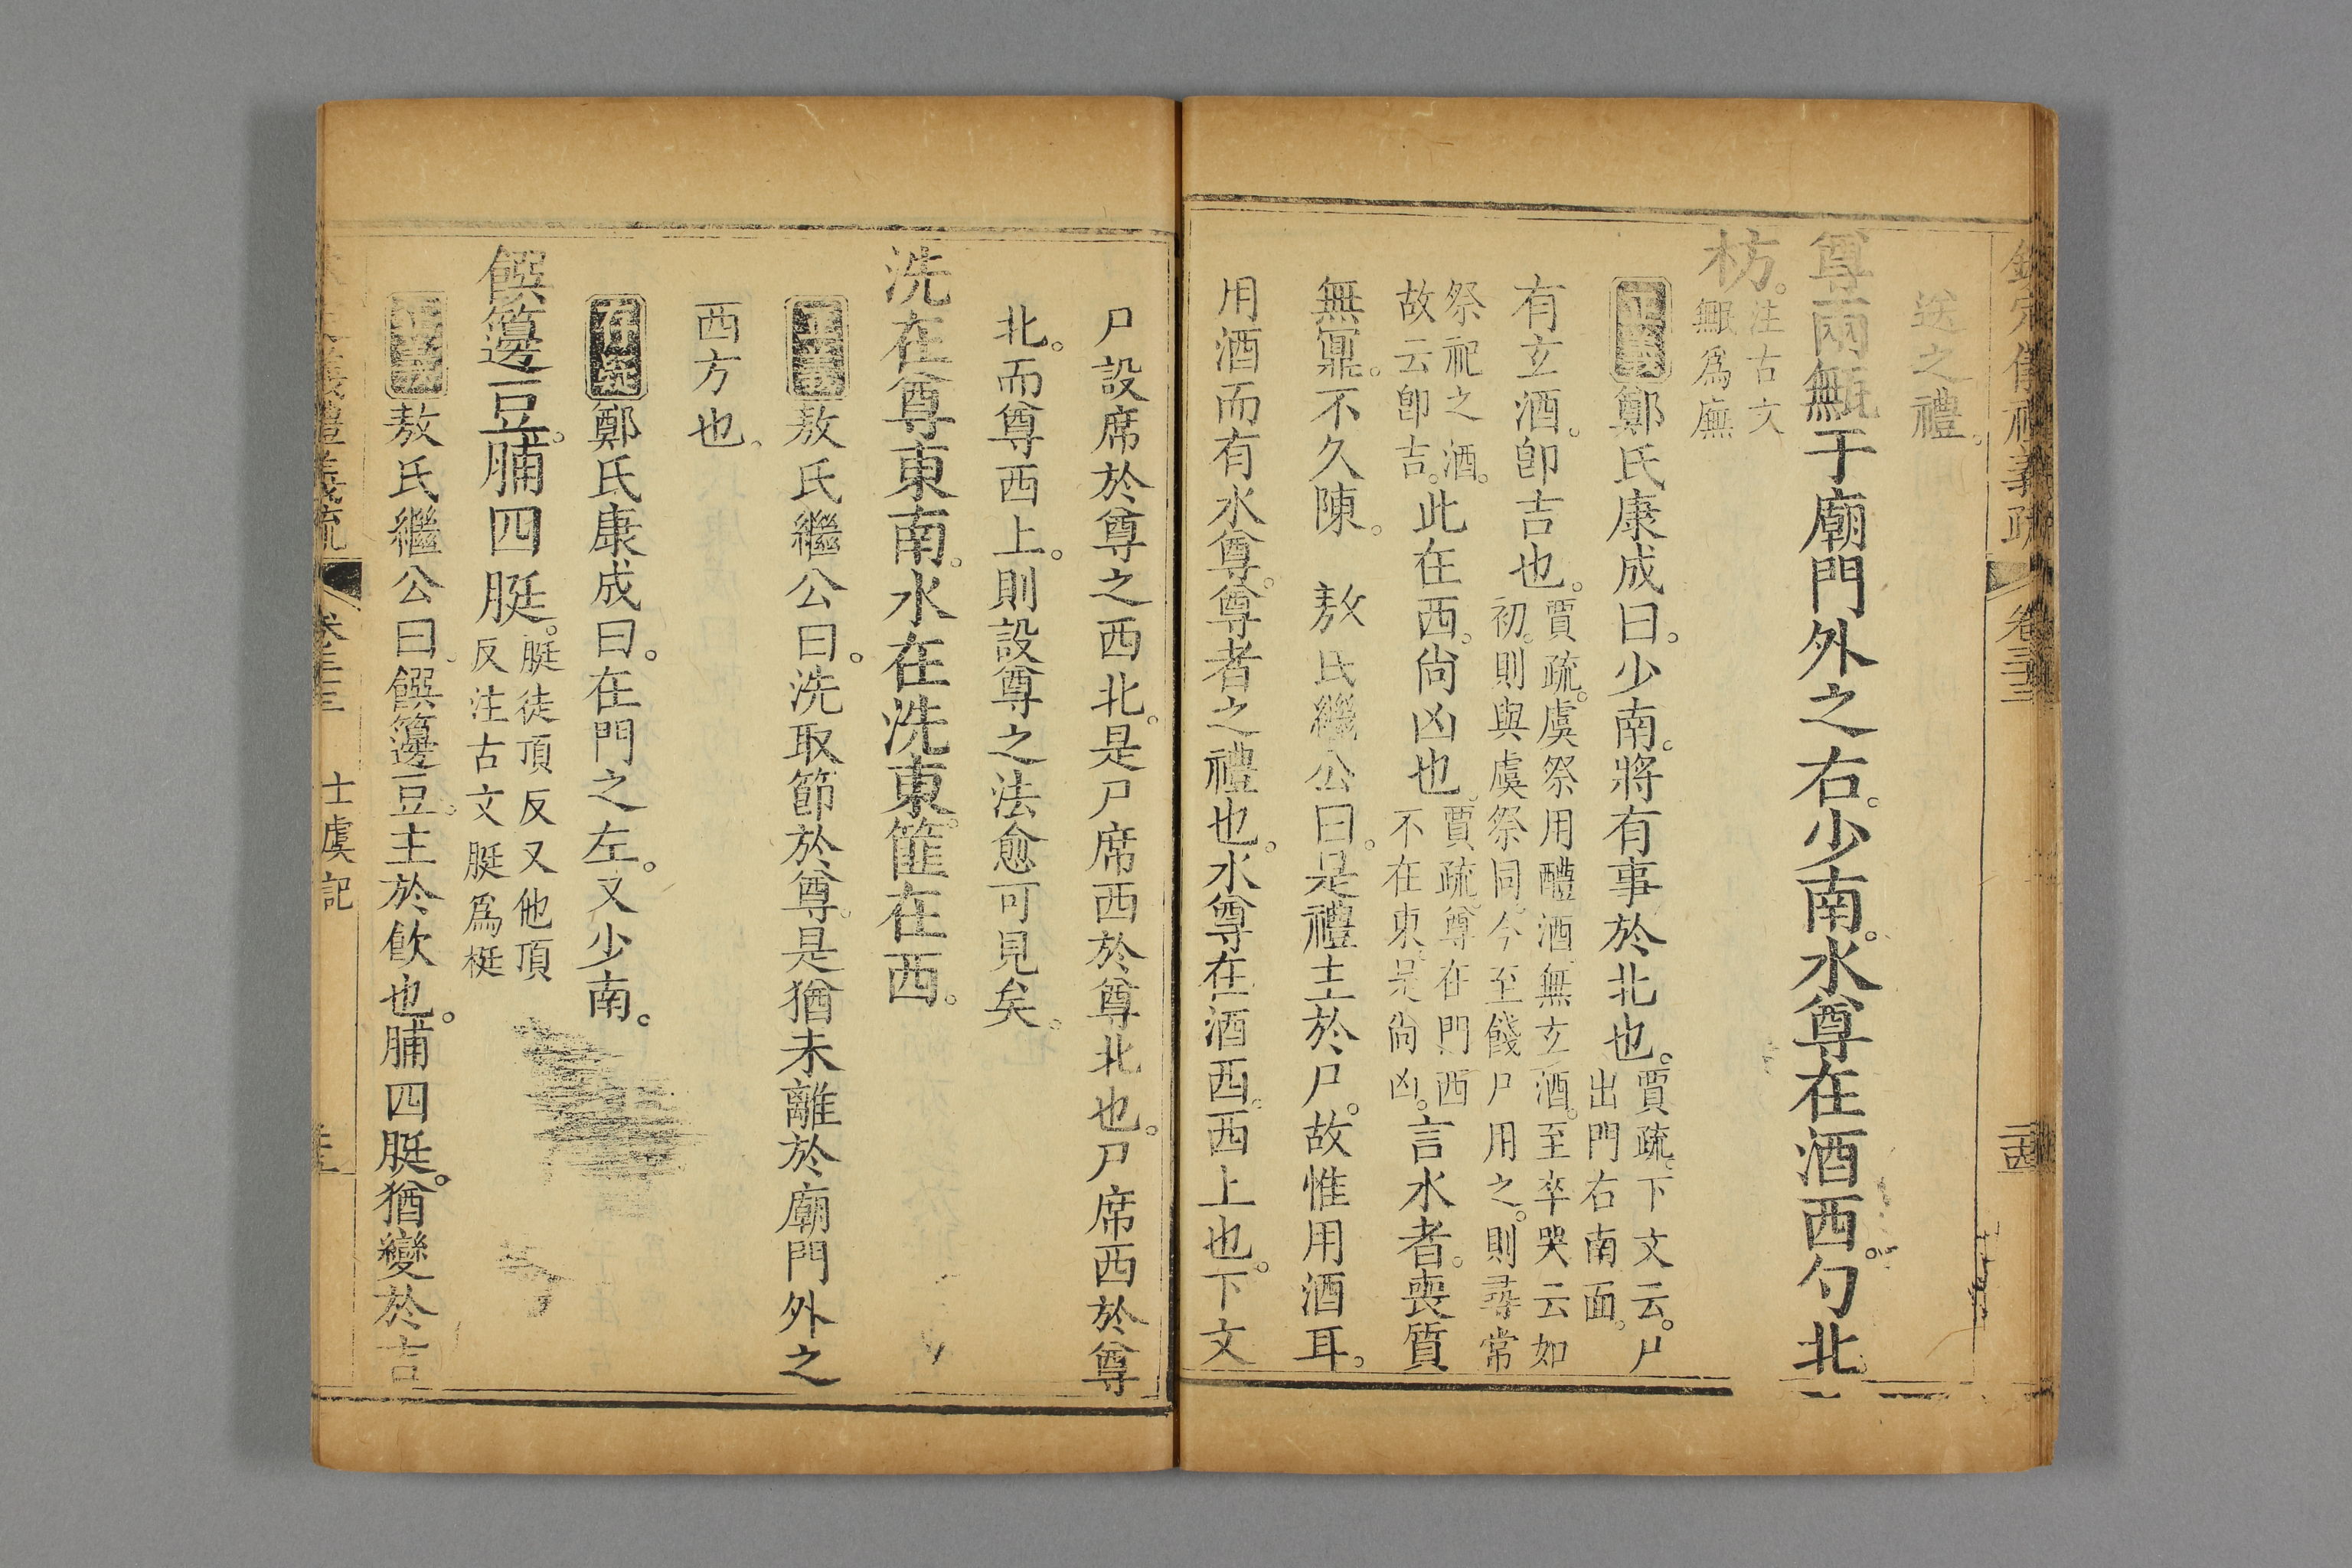 欽定儀禮義疏 卷三十三 二十四
送之禮。
尊兩甒于廟門外之右。少南。水尊在酒西。勺北
枋。注古文甒爲廡
正義鄭氏康成曰。少南。將有事於北也。賈疏。下文云。尸出門右南面。
有玄酒。卽吉也。賈疏。虞祭用醴酒無玄酒。至卒哭云如初。則與虞祭同。今至餞尸用之。則尋常
祭祀之酒。故云卽吉。此在西。尙凶也。賈疏。尊在門西不在東。是尙凶。言水者。喪質
無冪。不久陳。 敖氏繼公曰。是禮主於尸。故惟用酒耳。
用酒而有水尊。尊者之禮也。水尊在酒西。西上也。下文
尸設席於尊之西北。是尸席西於尊北也。尸席西於尊
北。而尊西上。則設尊之法愈可見矣。
洗在尊東南。水在洗東。篚在西。
正義敖氏繼公曰。洗取節於尊。是猶未離於廟門外之
西方也。
存疑鄭氏康成曰。在門之左。又少南。
饌籩豆。脯四脡。脡徒頂反又他頂反注古文脡爲梃
正義敖氏繼公曰。饌籩豆。主於飮也。脯四脡。猶變於吉
義禮義疏 卷三十三 士虞記